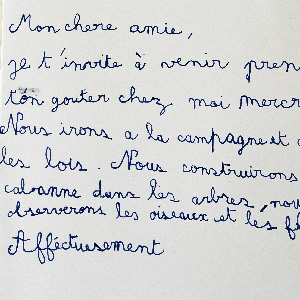 Mon chere amie,
je t'invite à venir pren
ton gouter chez moi mercr
Nous irons a la campagne et
les lois. Nous construirons
cabanne dans les arbres, nou
observerons les oiseaux et les
Afféctuesement